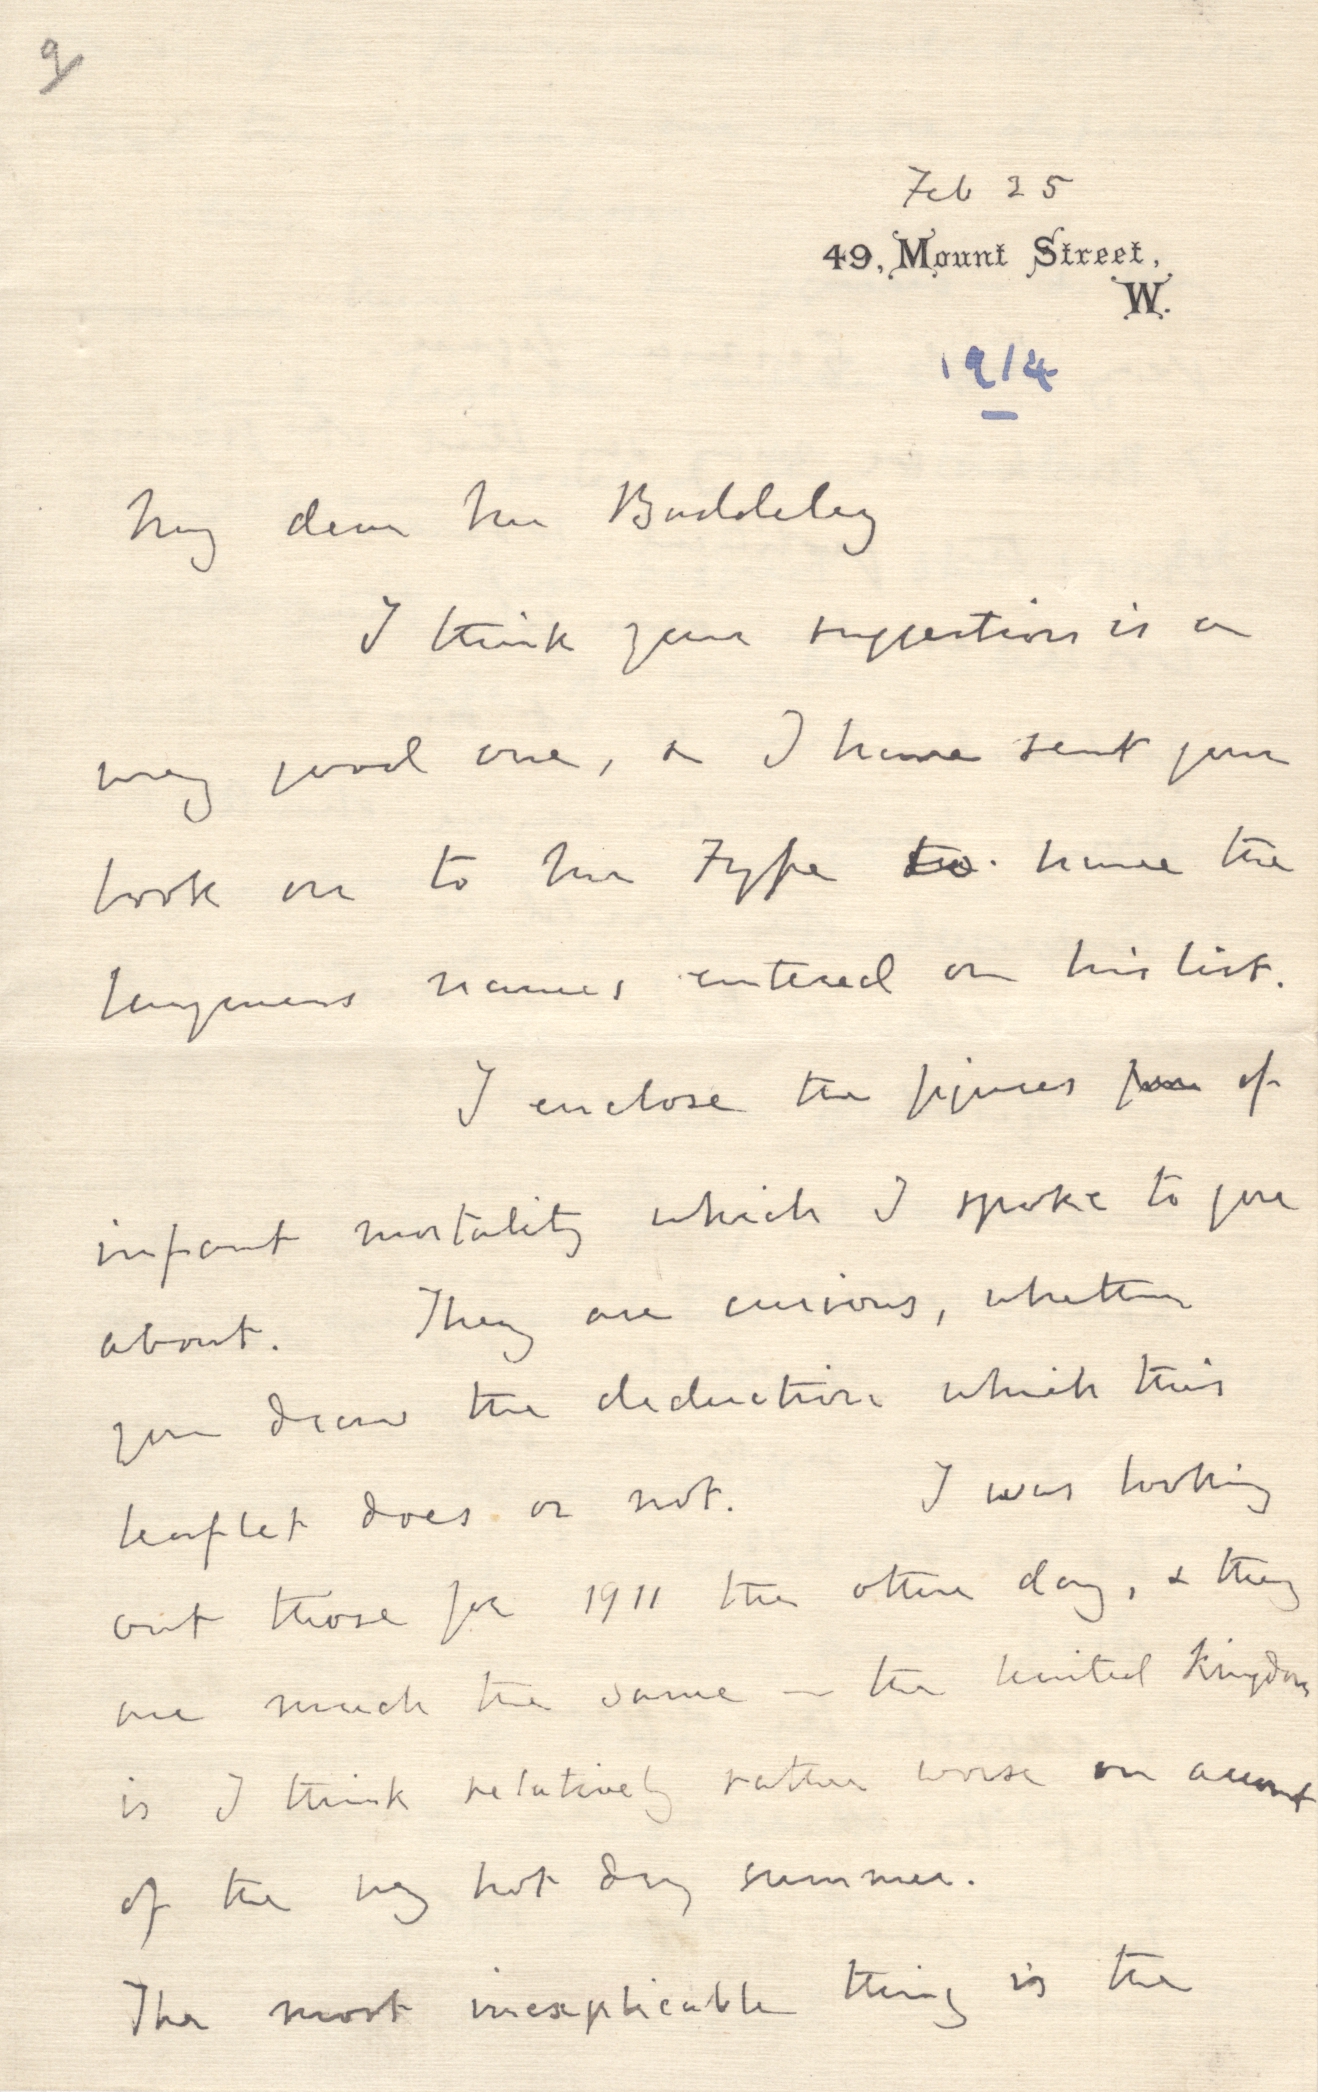 9
Feb 25
49, Mount Street,
W.
1914
My dear Mr Baddeley
I think your suggestion is a
very good one, & I have sent your
book on to Mr Fyfe to have the
laymens names entered on his list.
I enclose the figures for of
infant mortality which I spoke to you
about. They are curious, whether
you draw the deduction which this
leaflet does or not. I was looking
out those for 1911 the other day, & they
are much the same — the United Kingdom
is I think relatively rather worse on account
of the very hot dry summer.
The most inexplicable thing is the